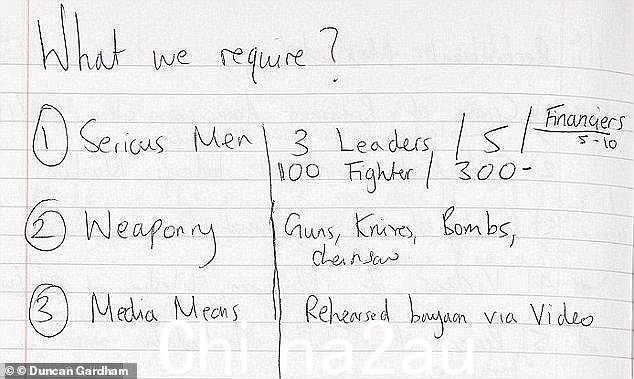 What we require?
① Serious Men | 3 Leaders / 5 / Financiers 5-10
100 Fighter / 300-
② Weaponry Guns, Knives, Bombs,
chainsaw
③ Media Means Rehearsed bayaan via Video
Chi na2au
© Duncan Gardham